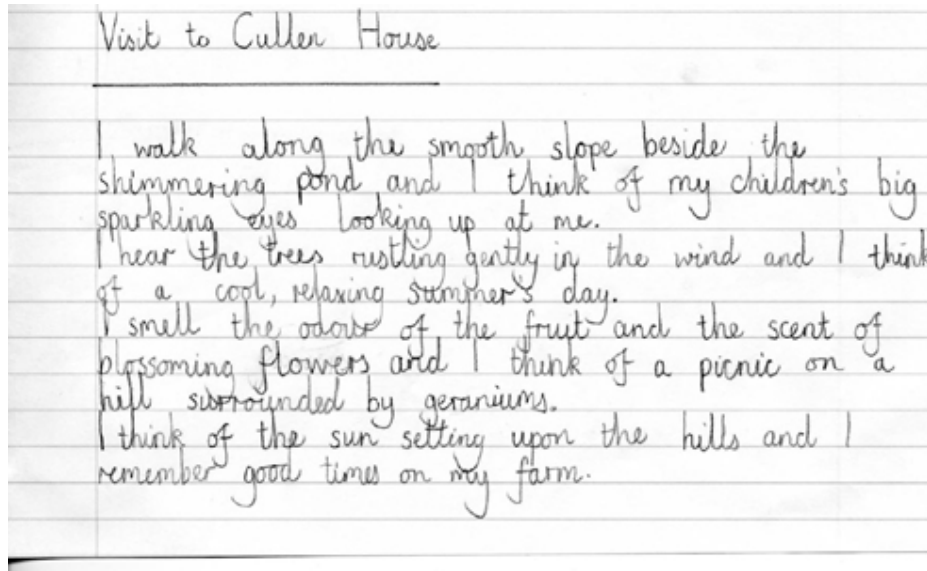 Visit to Cullen House
I walk along the smooth slope beside the
shimmering pond and I think of my children's big
sparkling eyes looking up at me.
I hear the trees rustling gently in the wind and I think
of a cool, relaxing summer's day.
I smell the odour of the fruit and the scent of
blossoming flowers and I think of a picnic on a
hill surrounded by geraniums.
I think of the sun setting upon the hills and I
remember good times on my farm.